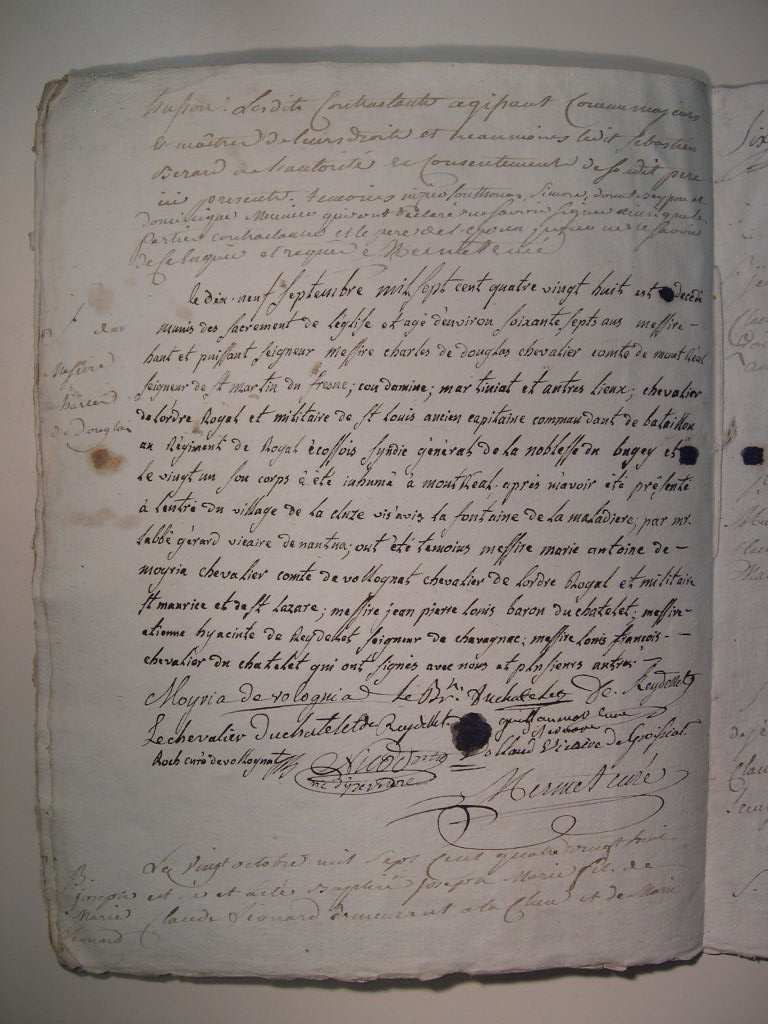 husson: Lesdits Contractants agissant Comme majeurs
& maître de leurs droits et neanmoins ledit sebastien
Berard de l'autorité et Consentement de sondit pere
ici present. temoins
dominique Meunier qui ont déclaré ne savoir signer
parties contractantes et le pere de l'epoux
de ce enquis et requis
le dix-neuf septembre mil sept cent quatre vingt huit est decédé
munis des sacrement de l'église et agé d'environ soixante septs ans messire
haut et puissant seigneur messire charles de douglas chevalier comte de montréal
seigneur de st martin du fresne; condamine; martiniat et autres lieux; chevalier
de l'ordre Royal et militaire de st Louis ancien capitaine commandant de bataillon
au Régiment de Royal écossois syndic général de la noblesse du bugey et
le vingt un son corps à été inhumé à montreal après m'avoir été présenté
à l'entré du village de la cluze vis'avis la fontaine de la maladiere, par mr.
l'abbé gérard vicaire de nantua; ont été temoins messire marie antoine de
moyria chevalier comte de vollognat chevalier de l'ordre Royal et militaire
st maurice et de st Lazare; messire jean pierre Louis baron du chatelet; messire
etienne hyacinte de Reydellet seigneur de chavagnac; messire Louis françois
chevalier du chatelèt qui ont signés avec nous et plusieurs autres
messire
charles
de Douglas
Moyria de vologniat le Bn. Duchatelet De Reydellet
Le chevalier Duchatelet de Reydellet guillaumot curé
Roch curé de vollognat Nicod Rolland Vicaire de Goissiat
Mermet curé
Le vingt octobre mil sept cent quatre vingt huit
est né et a été Baptisé Joseph Marie fils de
Claude Léonard demeurant a la Cluse et de Marie
B.
joseph
Marie
Léonard